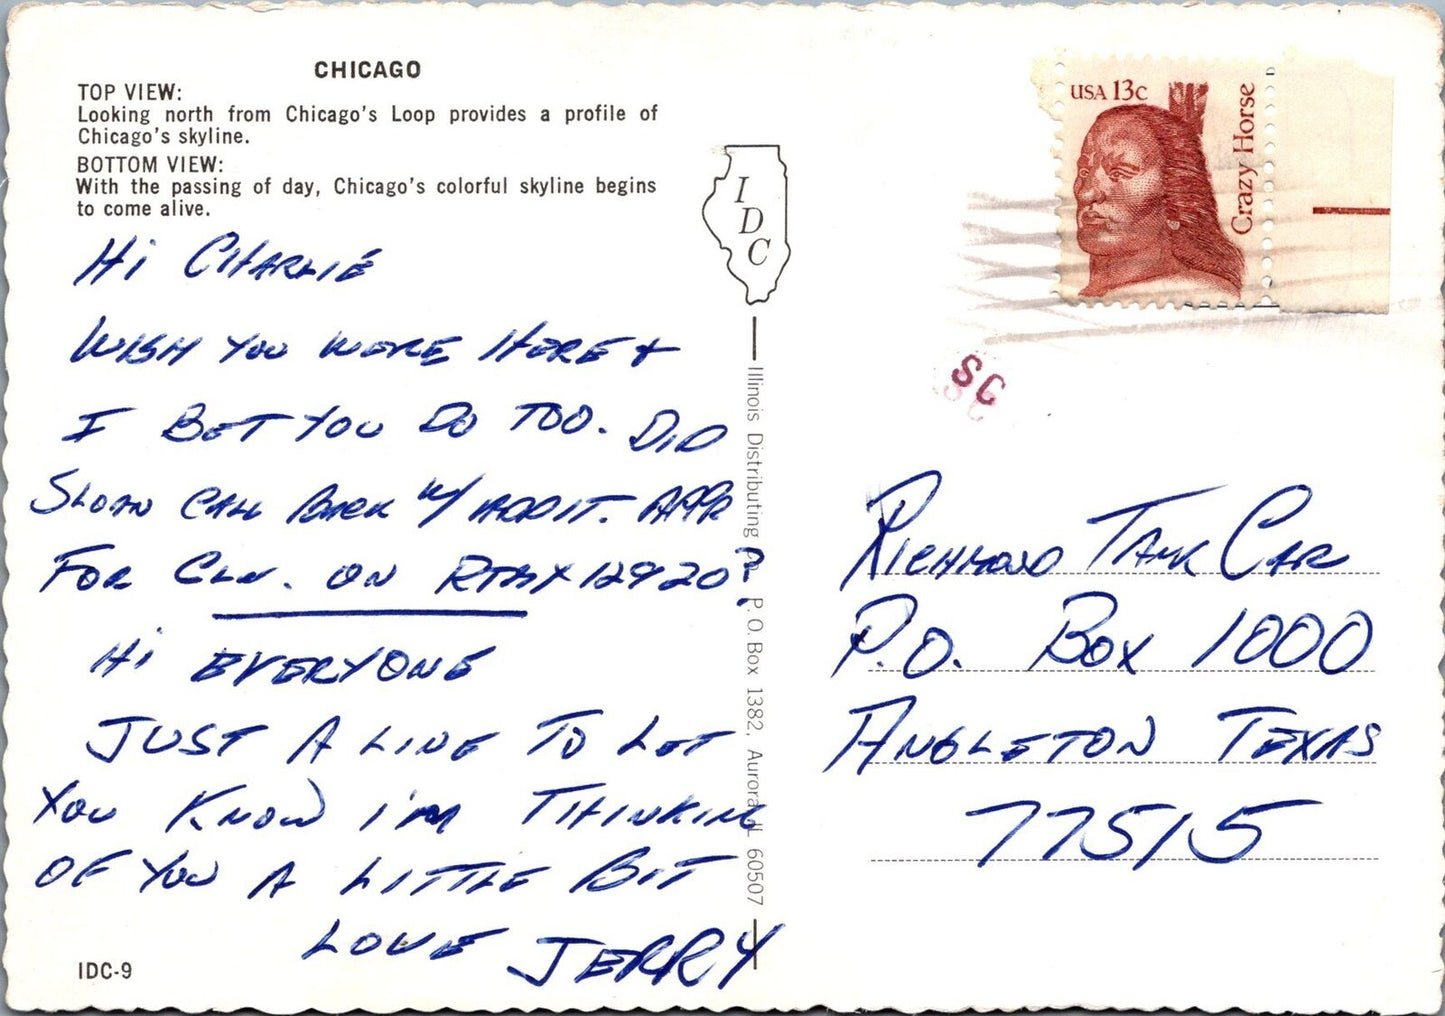 CHICAGO
TOP VIEW:
Looking north from Chicago's Loop provides a profile of
Chicago's skyline.
BOTTOM VIEW:
With the passing of day, Chicago's colorful skyline begins
to come alive.
HI CHARLIE
WISH YOU WERE HERE &
I BET YOU DO TOO. DID
SLOAN CALL BACK W/ ADDIT. APPR
FOR CLN. ON RTMX 12920?
HI EVERYONE
JUST A LINE TO LET
YOU KNOW I'M THINKING
OF YOU A LITTLE BIT
LOVE JERRY
IDC-9
IDC
Illinois Distributing P.O. Box 1382, Aurora IL 60507
USA 13c
Crazy Horse
SC
RICHMOND TANK CAR
P.O. BOX 1000
ANGLETON TEXAS
77515